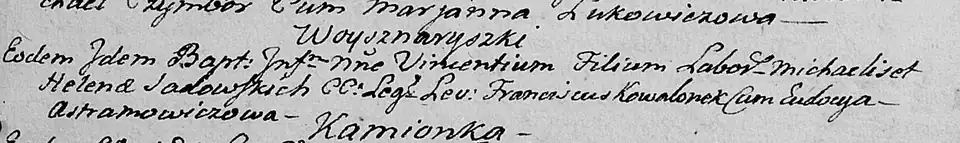 chael Czymbor Cum Marjanna Lukowiczowa
Woysznaryszki
Eodem Idem Bapt: Infm nne Vincentium Filium Labor. Michaelis et
Helenæ Sadowskich CC: Leg: Lev: Franciscus Kowalonek Cum Eudocya
Astramowiczowa
Kamionka